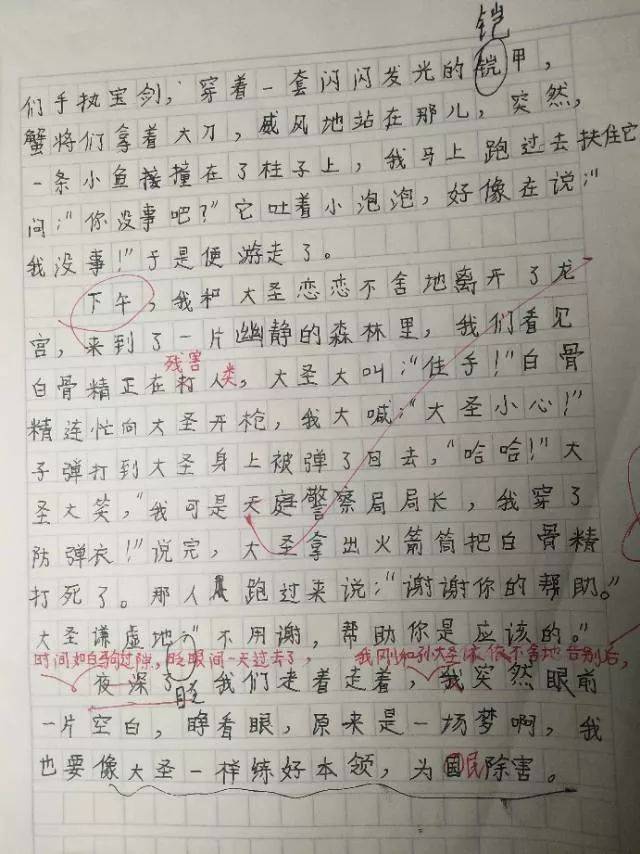 铠
们手执宝剑，穿着一套闪闪发光的铠甲，
蟹将们拿着大刀，威风地站在那儿，突然，
一条小鱼接撞在了柱子上，我马上跑过去扶住它
问：“你没事吧？”它吐着小泡泡，好像在说：“
我没事！”于是便游走了。
下午，我和大圣恋恋不舍地离开了龙
宫，来到了一片幽静的森林里，我们看见
残害
白骨精正在打人类，大圣大叫：“住手！”白骨
精连忙向大圣开枪，我大喊：“大圣小心！”
子弹打到大圣身上被弹了回去，“哈哈！”大
圣大笑，“我可是天庭警察局局长，我穿了
防弹衣！”说完，大圣拿出火箭筒把白骨精
打死了。那人跑过来说：“谢谢你的帮助。”
大圣谦虚地：“不用谢，帮助你是应该的。”
时间如白驹过隙，眨眼间一天过去了，我刚和孙大圣依依不舍地告别后，
夜深了，我们走着走着，我突然眼前
一片空白，睁看眼，原来是一场梦啊，我
也要像大圣一样练好本领，为国民除害。